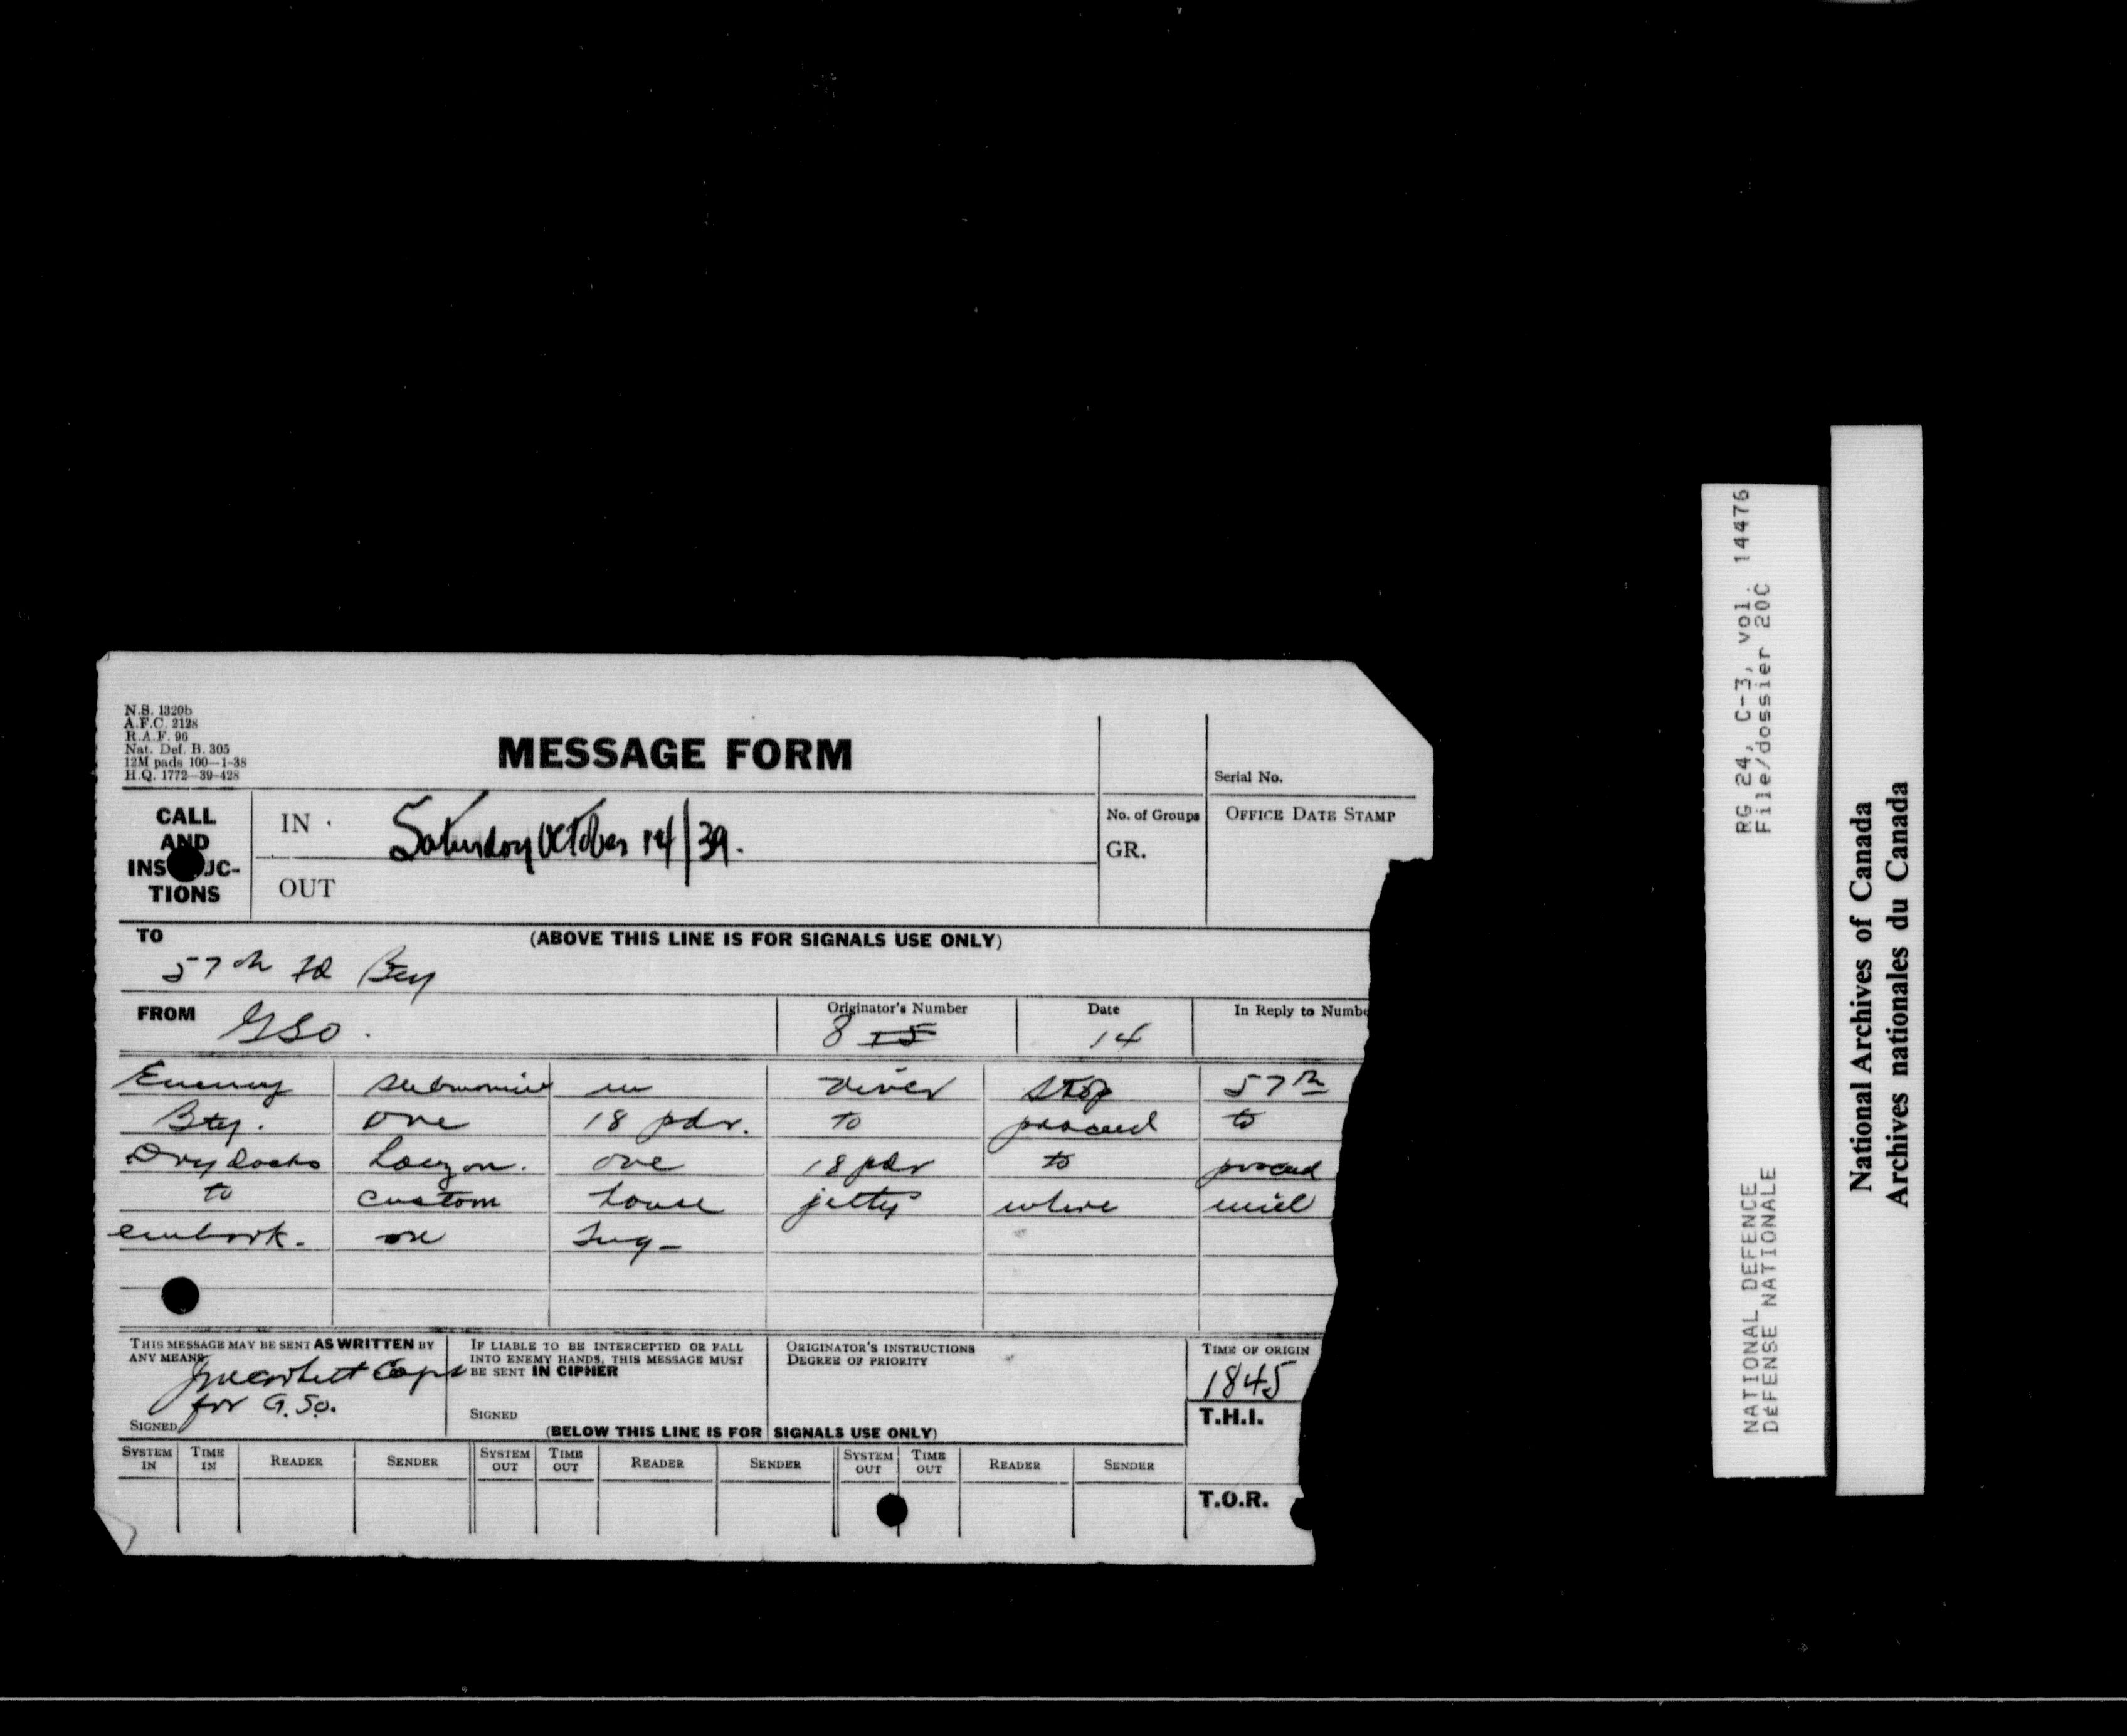 N.S. 1320b
A.F.C. 2128
R.A.F. 96
Nat. Def. B. 305
12M pads 100—1-38
H.Q. 1772—39-428
MESSAGE FORM
Serial No.
CALL AND INSTRUC-TIONS
IN
Saturday October 14/39.
OUT
No. of Groups
GR.
OFFICE DATE STAMP
TO
(ABOVE THIS LINE IS FOR SIGNALS USE ONLY)
57th Fd Bty
FROM GSO.
Originator's Number
8 15
Date
14
In Reply to Numbe
Enemy submarine in river stop 57th
Bty. one 18 pdr. to proceed to
Dry docks Lauzon. one 18 pdr to proceed
to custom house jetty where will
embark. on Tug-
THIS MESSAGE MAY BE SENT AS WRITTEN BY ANY MEANS
Capt
for G.S.O.
SIGNED
IF LIABLE TO BE INTERCEPTED OR FALL INTO ENEMY HANDS, THIS MESSAGE MUST BE SENT IN CIPHER
SIGNED
ORIGINATOR'S INSTRUCTIONS
DEGREE OF PRIORITY
TIME OF ORIGIN
1845
T.H.I.
T.O.R.
(BELOW THIS LINE IS FOR SIGNALS USE ONLY)
SYSTEM IN TIME IN READER SENDER SYSTEM OUT TIME OUT READER SENDER SYSTEM OUT TIME OUT READER SENDER
RG 24, C-3, vol. 14476
File/dossier 20C
NATIONAL DEFENCE
DÉFENSE NATIONALE
National Archives of Canada
Archives nationales du Canada